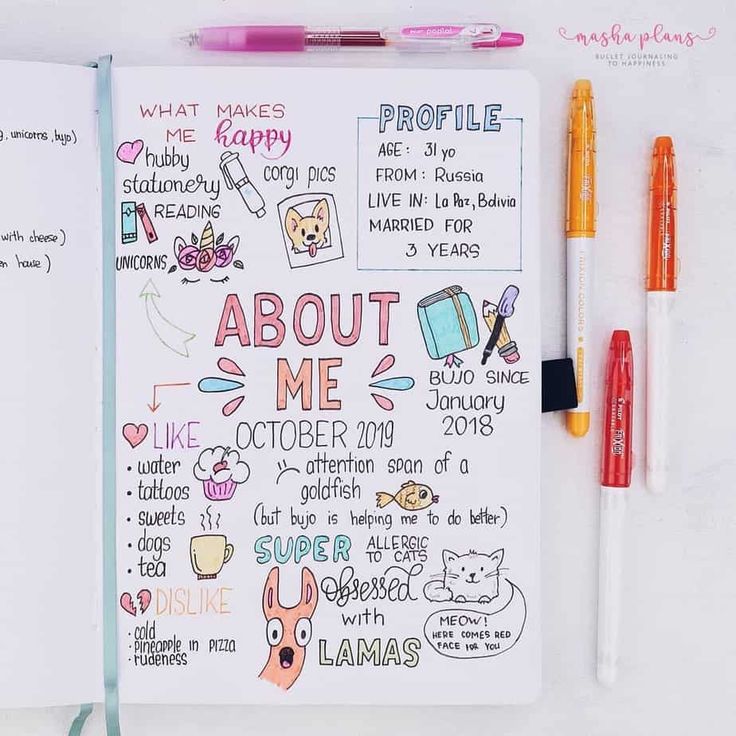 masha plans
BULLET JOURNALING
TO HAPPINESS
poptol
, unicorns, bujo)
with cheese)
house)
WHAT MAKES
ME happy
hubby
stationery
corgi pics
READING
UNICORNS
PROFILE
AGE: 31 yo
FROM: Russia
LIVE IN: La Paz, Bolivia
MARRIED FOR
3 YEARS
ABOUT
ME
BUJO SINCE
January
2018
LIKE
• water
• tattoos
• sweets
• dogs
• tea
DISLIKE
• cold
• pineapple in pizza
• rudeness
OCTOBER 2019
attention span of a
goldfish
(but bujo is helping me to do better)
SUPER ALLERGIC
TO CATS
obsessed
with
LAMAS
MEOW!
HERE COMES RED
FACE FOR YOU
FRIXION COLORS
PILOT FRIXION